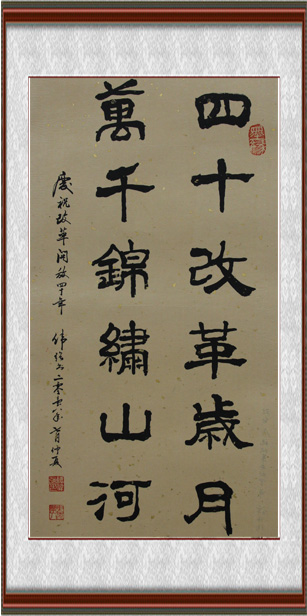 四十改革歲月
萬千錦繡山河
慶祝改革開放四十年